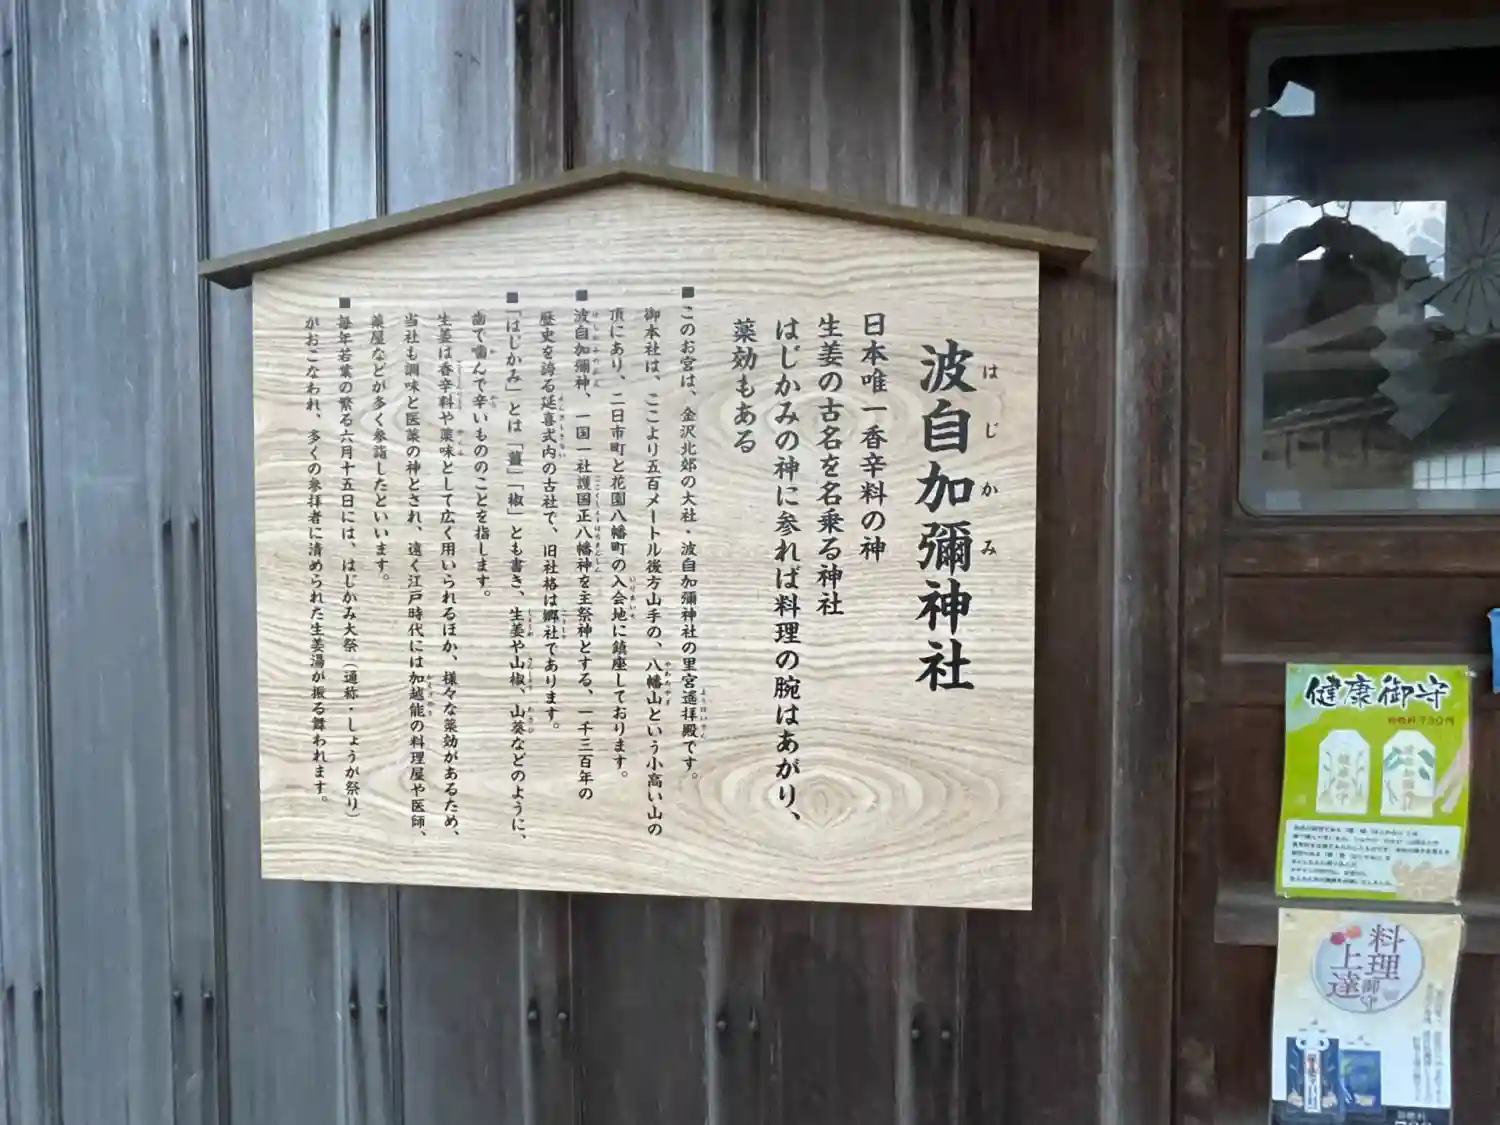 波自加彌神社
はじかみ
日本唯一香辛料の神
生姜の古名を名乗る神社
はじかみの神に参れば料理の腕はあがり、
薬効もある
■このお宮は、金沢北郊の大社・波自加彌神社の里宮遥拝殿です。
ようはいでん
御本社は、ここより五百メートル後方山手の、八幡山という小高い山の
やわたやま
頂にあり、二日市町と花園八幡町の入会地に鎮座しております。
いりあいち
■波自加彌神、一国一社護国正八幡神を主祭神とする、一千三百年の
はじかみのかみ
歴史を誇る延喜式内の古社で、旧社格は郷社であります。
えんぎしきない ごうしゃ
■「はじかみ」とは「薑」「椒」とも書き、生姜や山椒、山葵などのように、
しょうが さんしょう わさび
歯で噛んで辛いもののことを指します。
か から
生姜は香辛料や薬味として広く用いられるほか、様々な薬効があるため、
こうしんりょう やくみ
当社も調味と医薬の神とされ、遠く江戸時代には加越能の料理屋や医師、
かえつのう
薬屋などが多く参詣したといいます。
■毎年若葉の繁る六月十五日には、はじかみ大祭（通称・しょうが祭り）
がおこなわれ、多くの参拝者に清められた生姜湯が振る舞われます。
健康御守
初穂料 700円
健康御守
料理
上達
御守